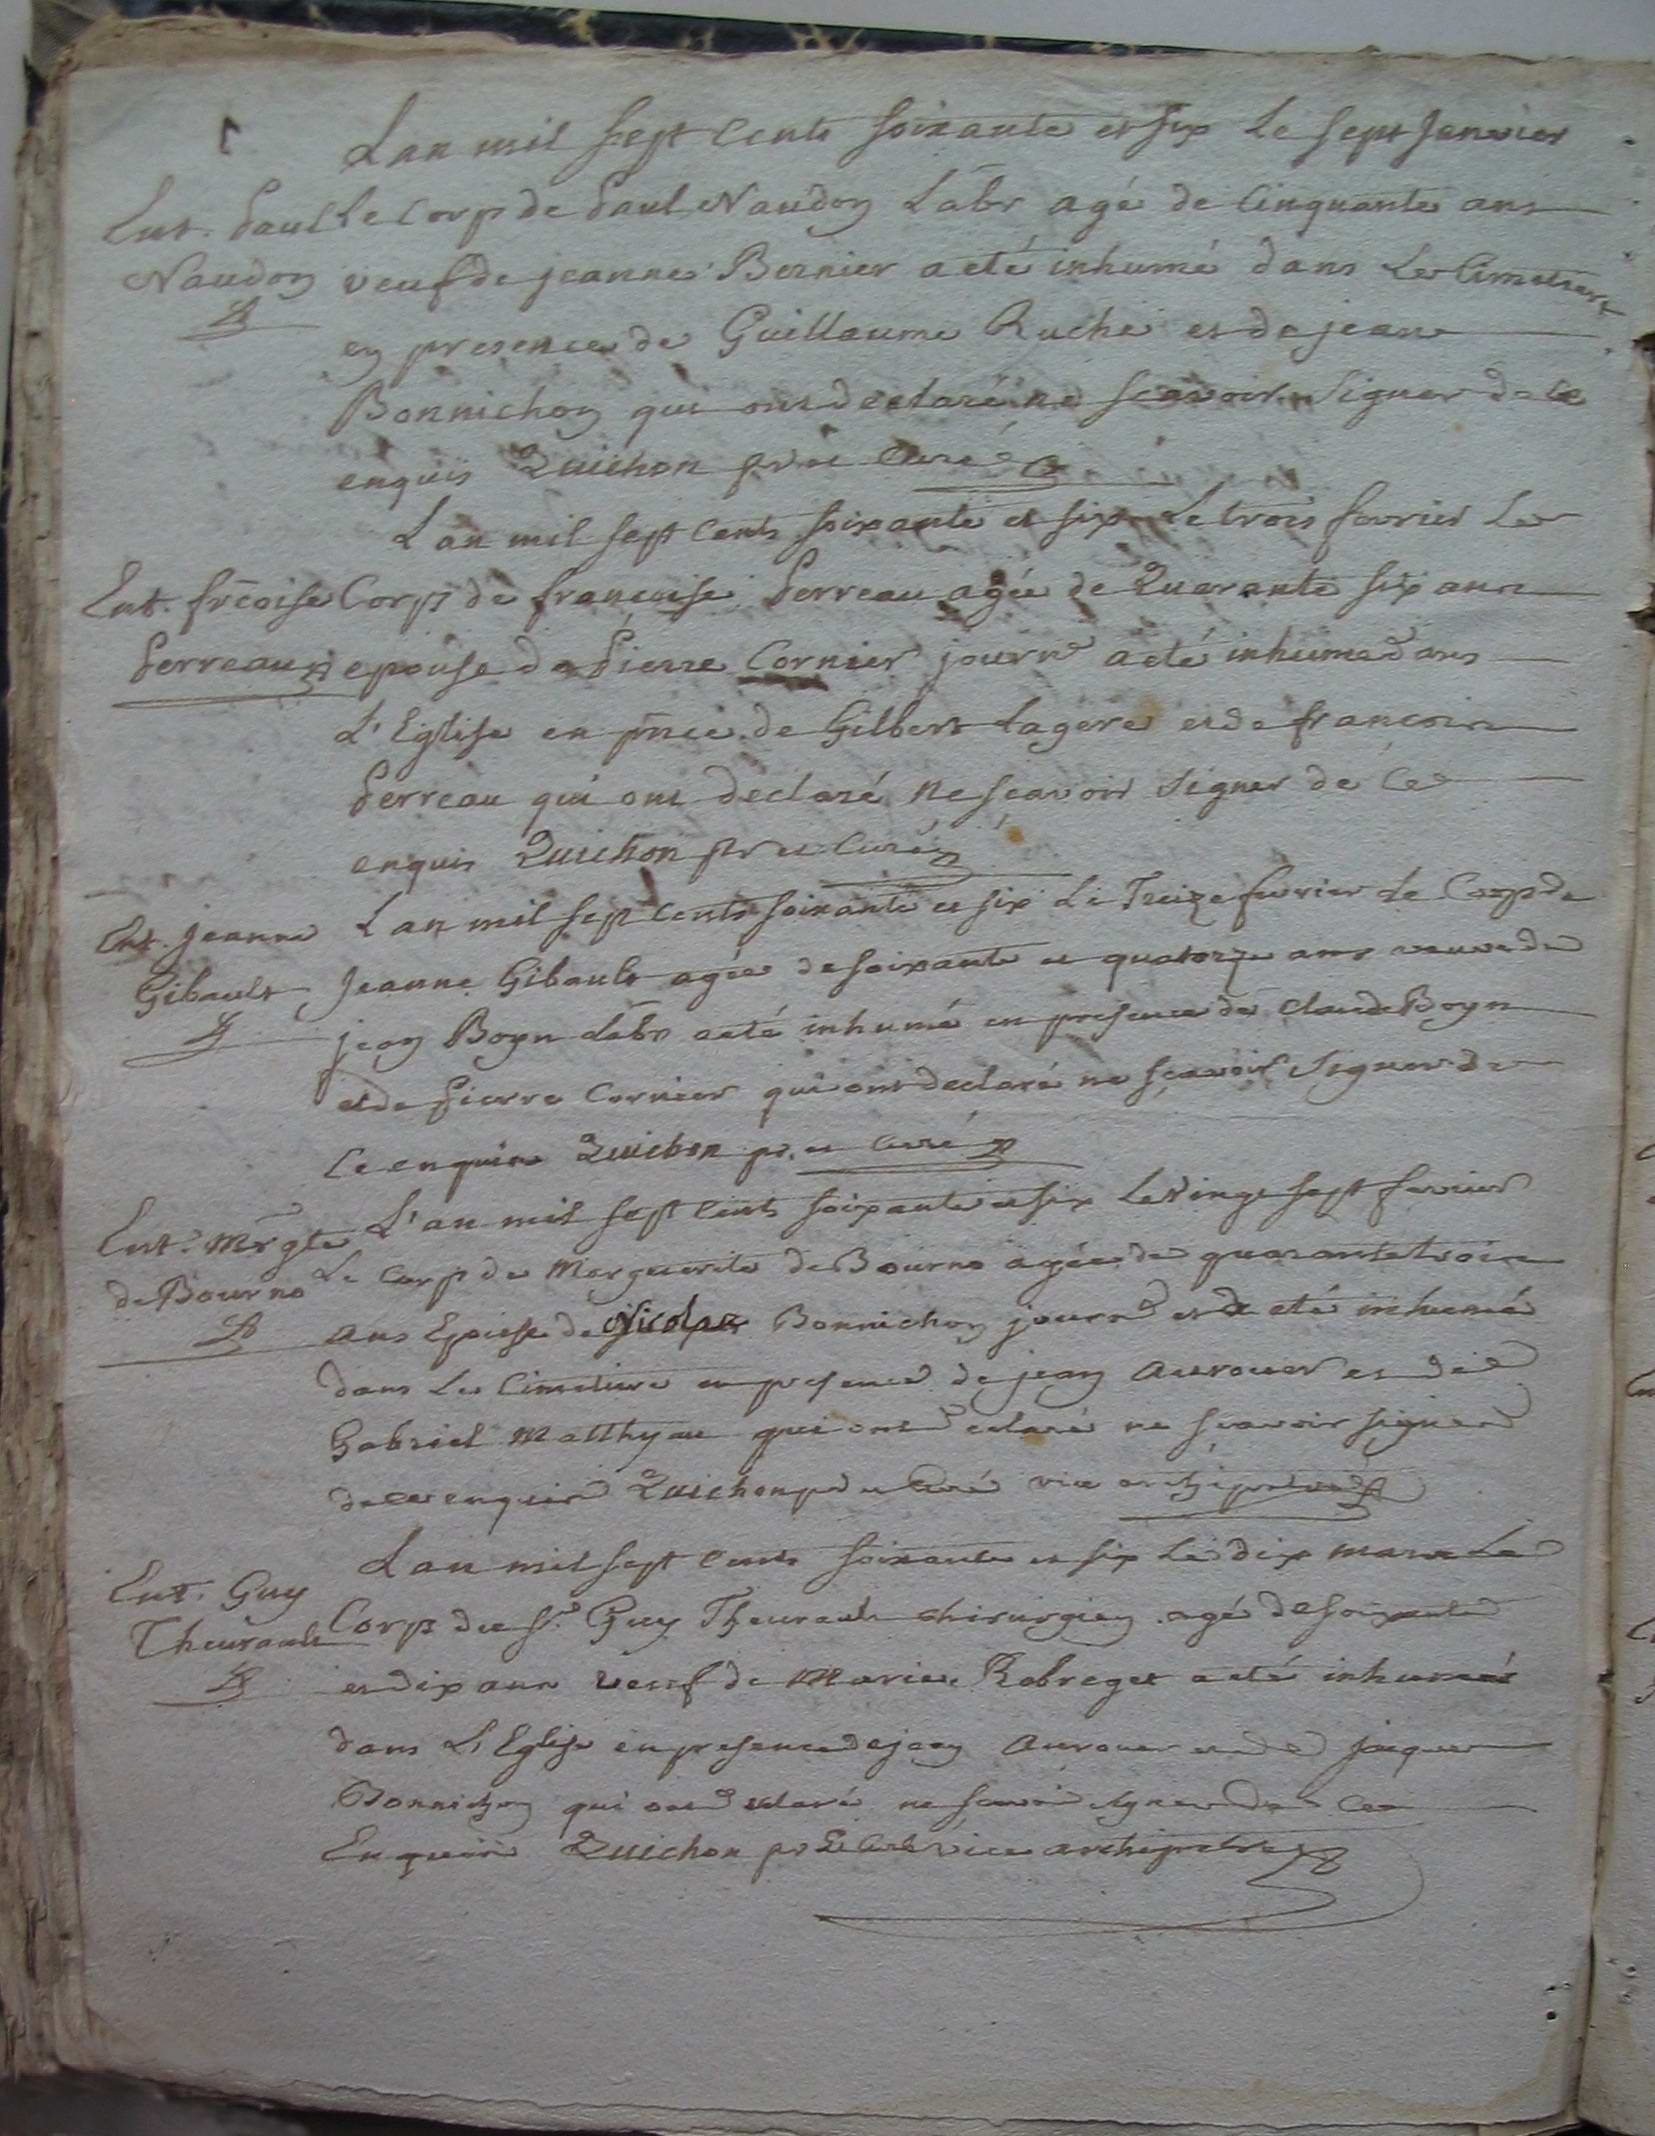 Lan mil sept cents soixante et six Le sept Janvier
Ent. Paul Le Corps de Paul Naudon Labr agé de Cinquante ans
Naudon veuf de jeanne Bernier a eté inhumé dans Le Cimetiere
en presence de Guillaume Ruche et de jean
Bonnichon qui ont declaré ne scavoir signer de ce
enquis Quichon ptre curé
Lan mil sept cents soixante et six Le trois fevrier Le
Ent. frcoise Corps de francoise Perreau agée de Quarante six ans
Perreau epouse de Pierre Cornier journr a eté inhumé dans
L'Eglise en pnce de Gilbert Lagere et de francois
Perreau qui ont declaré ne scavoir signer de Ce
enquis Quichon ptre curé
Ent. Jeanne Lan mil sept cents soixante et six Le Treize fevrier Le Corps de
Gibault Jeanne Gibault agée de soixante et quatorze ans veuve de
jean Boyn Labr a eté inhumé en presence de Claude Boyn
et de Pierre Cornier qui ont declaré ne scavoir signer de
Ce enquis Quichon ptre curé
Ent. Mrgte L'an mil sept cents soixante et six Le Vingt sept fevrier
de Bourno Le Corps de Marguerite de Bourno agée de quarante trois
ans Epouse de Nicolas Bonnichon journr a eté inhumé
dans Le Cimetiere en presence de jean Aurouer et de
Gabriel Matthyau qui ont declaré ne scavoir signer
de ce enquis Quichon ptre curé vice archiprtre
Lan mil sept cents soixante et six Le dix mars Le
Ent. Guy Corps du Sr. Guy Theurault chirurgien agé de soixante
Theurault et dix ans veuf de Marie Rebreget a eté inhumé
dans L'Eglise en presence de jean Aurouer et de Jacques
Bonnichon qui ont declaré ne scavoir signer de Ce
Enquis Quichon ptre curé vice archiprtre